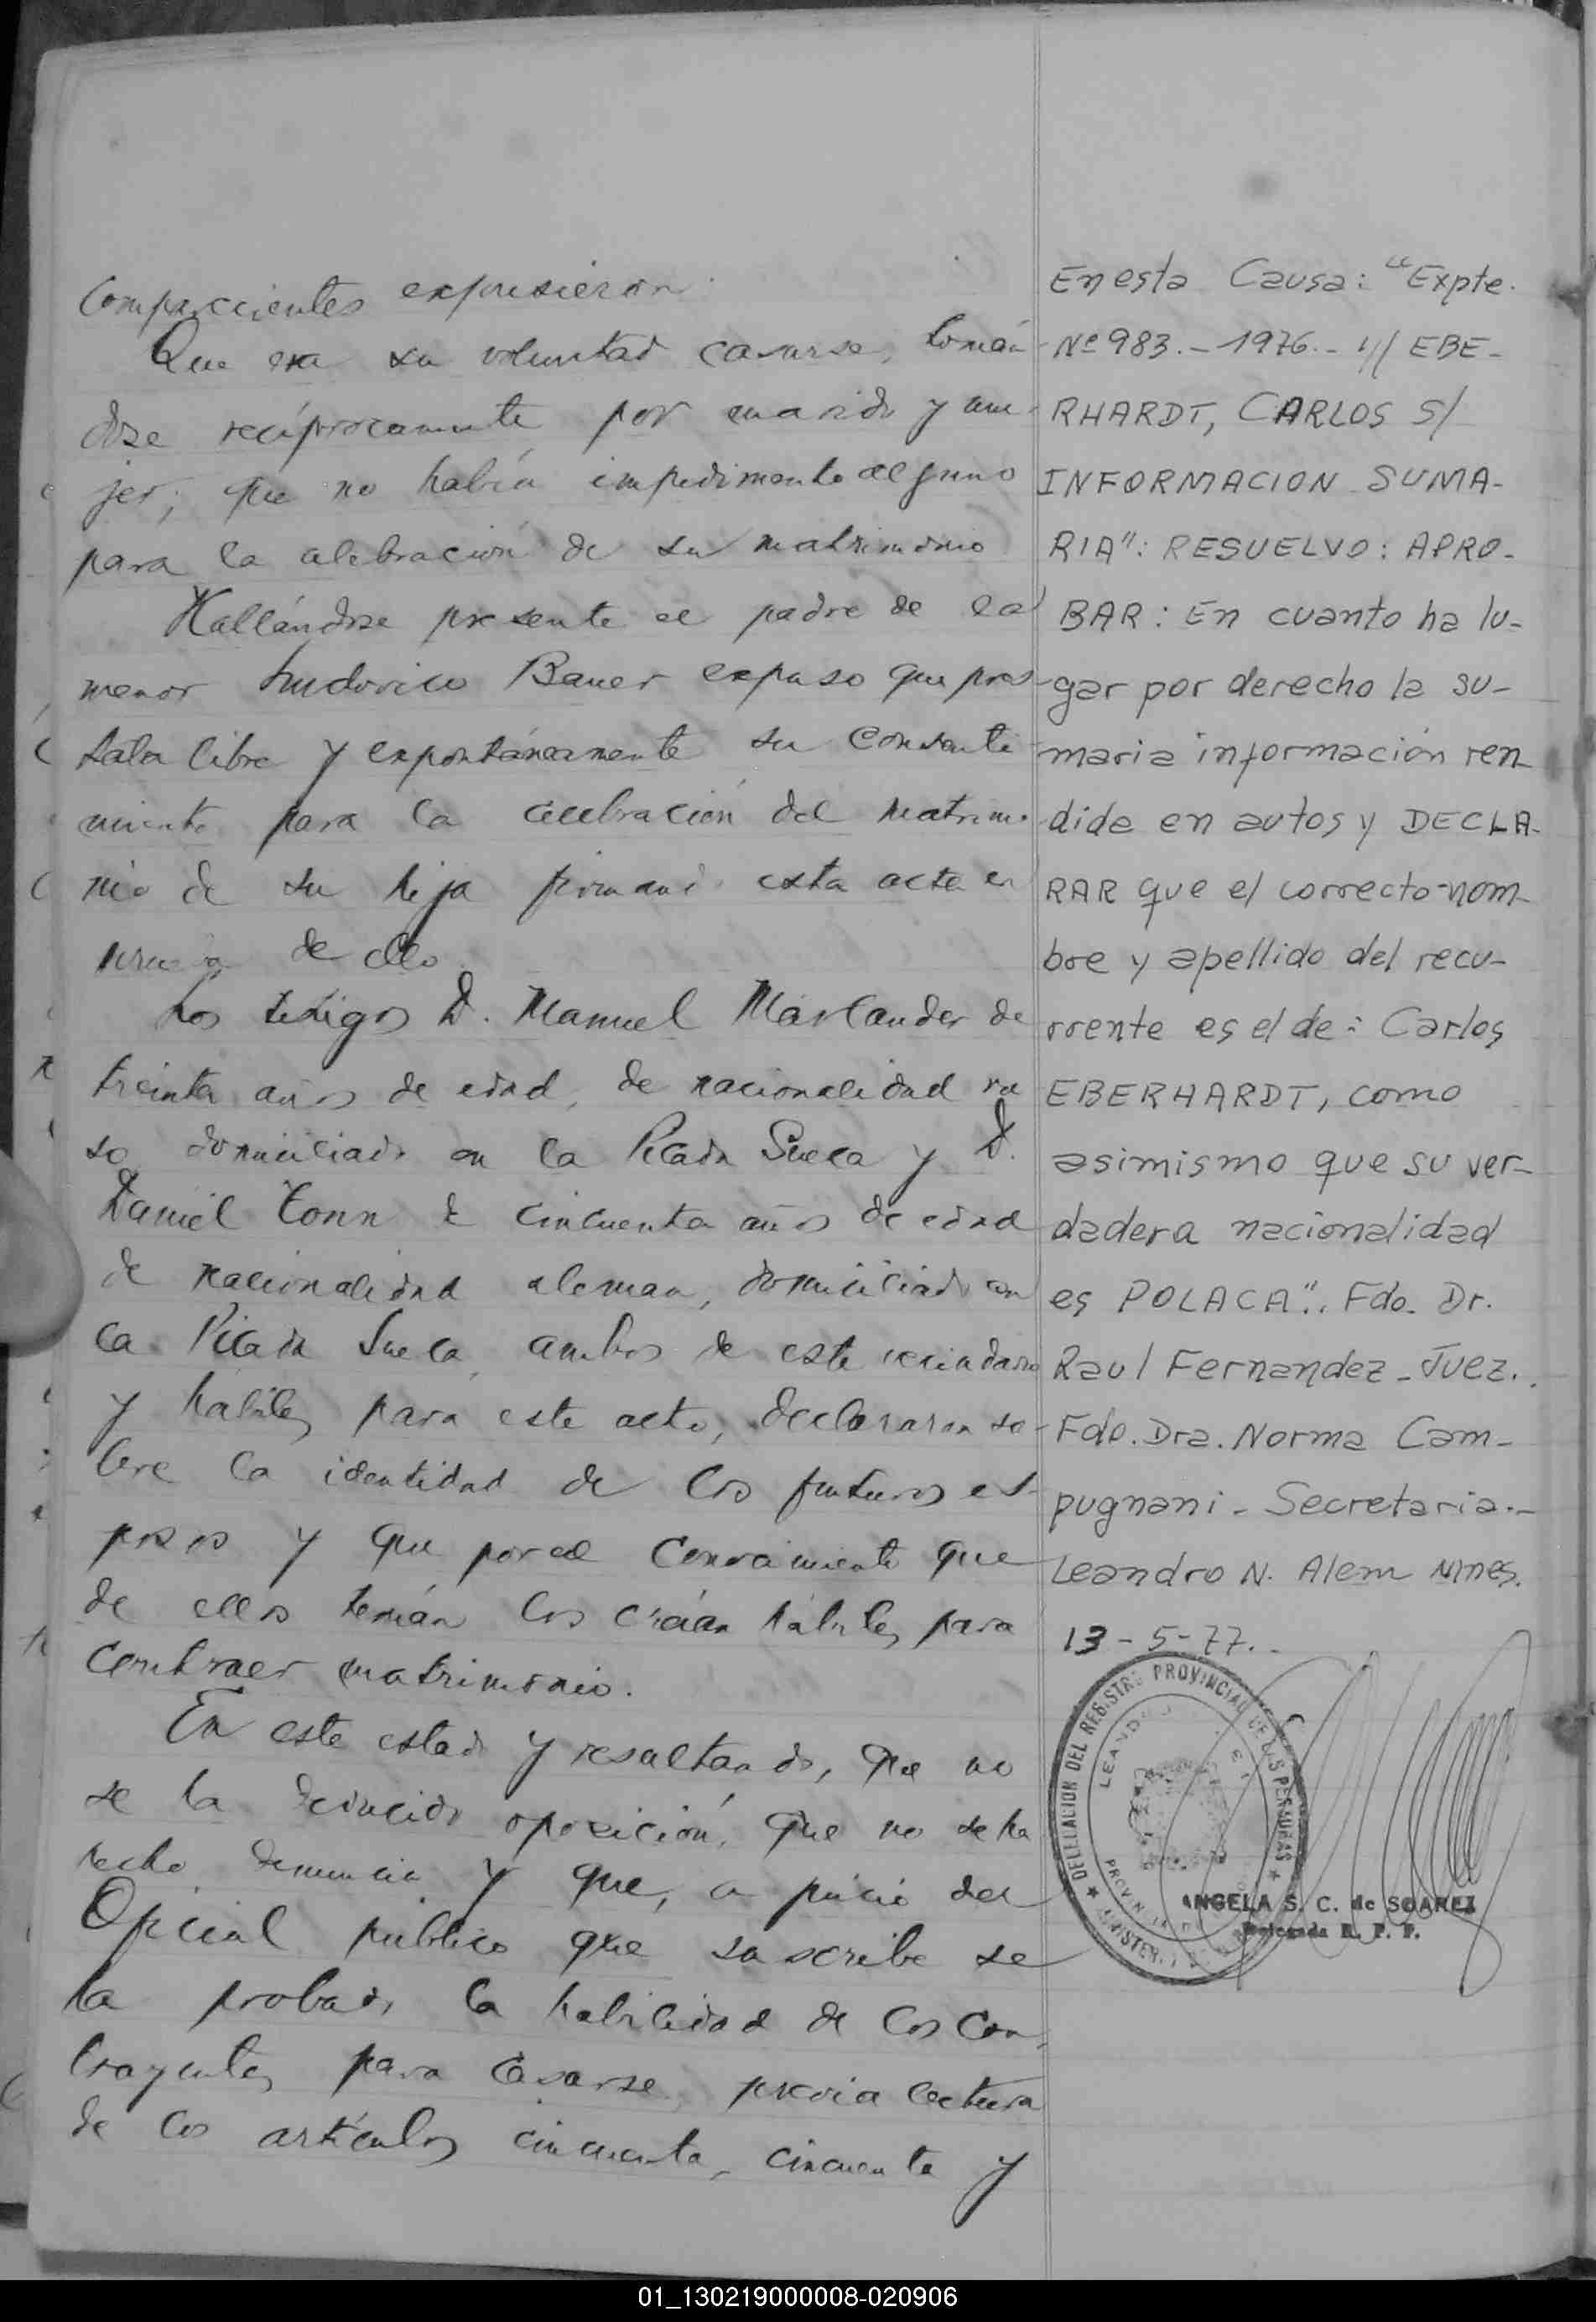 Comparecientes expusieron:
Que era su voluntad casarse, tomán
dose recíprocamente por marido y mu-
jer; que no había impedimento alguno
para la celebración de su matrimonio
Hallándose presente el padre de la
menor Ludovico Bauer expuso que pres-
taba libre y expontáneamente su consenti-
miento para la celebración del matrimo-
nio de su hija firmando esta acta en
prueba de ello.
Los testigos D. Manuel Marlander de
treinta años de edad, de nacionalidad ru
so domiciliado en la Picada Sueca y D.
Daniel Tonn de cincuenta años de edad
de nacionalidad aleman, domiciliado en
la Picada Sueca, ambos de este vecindario
y hábiles para este acto, declararon so-
bre la identidad de los futuros es-
posos y que por el conocimiento que
de ellos tenían los creían hábiles para
contraer matrimonio.
En este estado y resultando, que no
se ha deducido oposición, que no se ha
hecho denuncia y que, a juicio del
Oficial público que suscribe se
ha probado la habilidad de los con-
trayentes para casarse, previa lectura
de los artículos cincuenta, cincuenta y
En esta Causa: "Expte.
Nº 983.- 1976.- // EBE-
RHARDT, CARLOS S/
INFORMACION SUMA-
RIA": RESUELVO: APRO-
BAR: En cuanto ha lu-
gar por derecho la su-
maria información ren-
dida en autos y DECLA-
RAR que el correcto nom-
bre y apellido del recu-
rrente es el de: Carlos
EBERHARDT, como
asimismo que su ver-
dadera nacionalidad
es POLACA". Fdo. Dr.
Raul Fernandez - Juez.
Fdo. Dra. Norma Cam-
pugnani - Secretaria.-
Leandro N. Alem Mnes.
13 - 5 - 77.-
DELEGACION DEL REGISTRO PROVINCIAL DE LAS PERSONAS
ANGELA S. C. de SOAREZ
Delegada R. P. P.
01_130219000008-020906